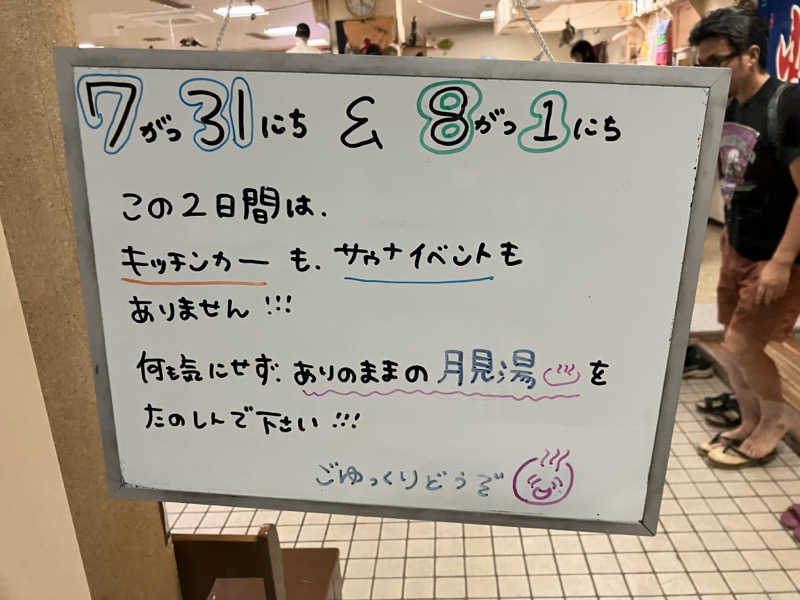 7がつ31にち & 8がつ1にち
この2日間は、
キッチンカーも、サウナイベントも
ありません!!!
何も気にせず、ありのままの月見湯♨を
たのしんで下さい!!!
ごゆっくりどうぞ